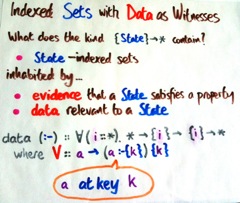 Indexed Sets with Data as Witnesses
What does the kind {State}→* contain?
• State-indexed sets
inhabited by...
• evidence that a State satisfies a property
• data relevant to a State
data (:-) :: ∀(i::*). * → {i} → {i} → *
where V :: a → (a :-{k}) {k}
a at key k